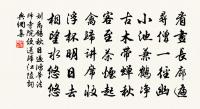 看畫長廊遍
尋僧一徑幽
小池兼鶴淨
古木帶蟬秋
客至茶煙起
禽歸講席收
浮杯明日去
相望水悠悠
劉禹錫秋日過鴻舉法
師寺院便送歸江陵詞
典網集